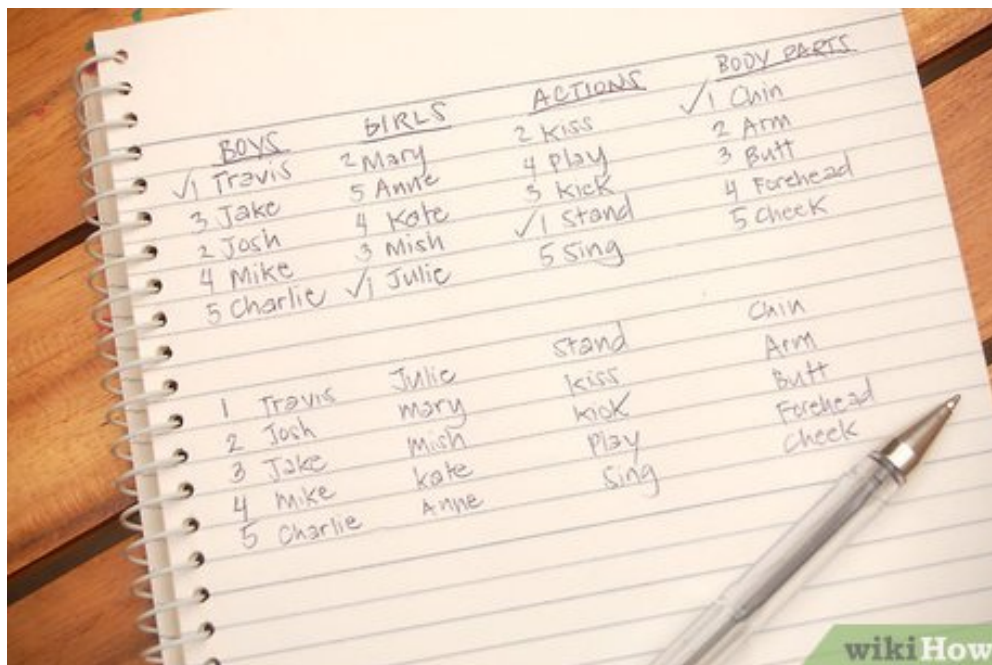 BOYS GIRLS ACTIONS BODY PARTS
✓1 Travis 2 Mary 2 Kiss ✓1 Chin
3 Jake 5 Anne 4 Play 2 Arm
2 Josh 4 Kate 3 Kick 3 Butt
4 Mike 3 Mish ✓1 Stand 4 Forehead
5 Charlie ✓1 Julie 5 Sing 5 Cheek
1 Travis Julie Stand Chin
2 Josh mary kiss Arm
3 Jake mish kick Butt
4 mike kate Play Forehead
5 Charlie Anne Sing cheek
wikiHow